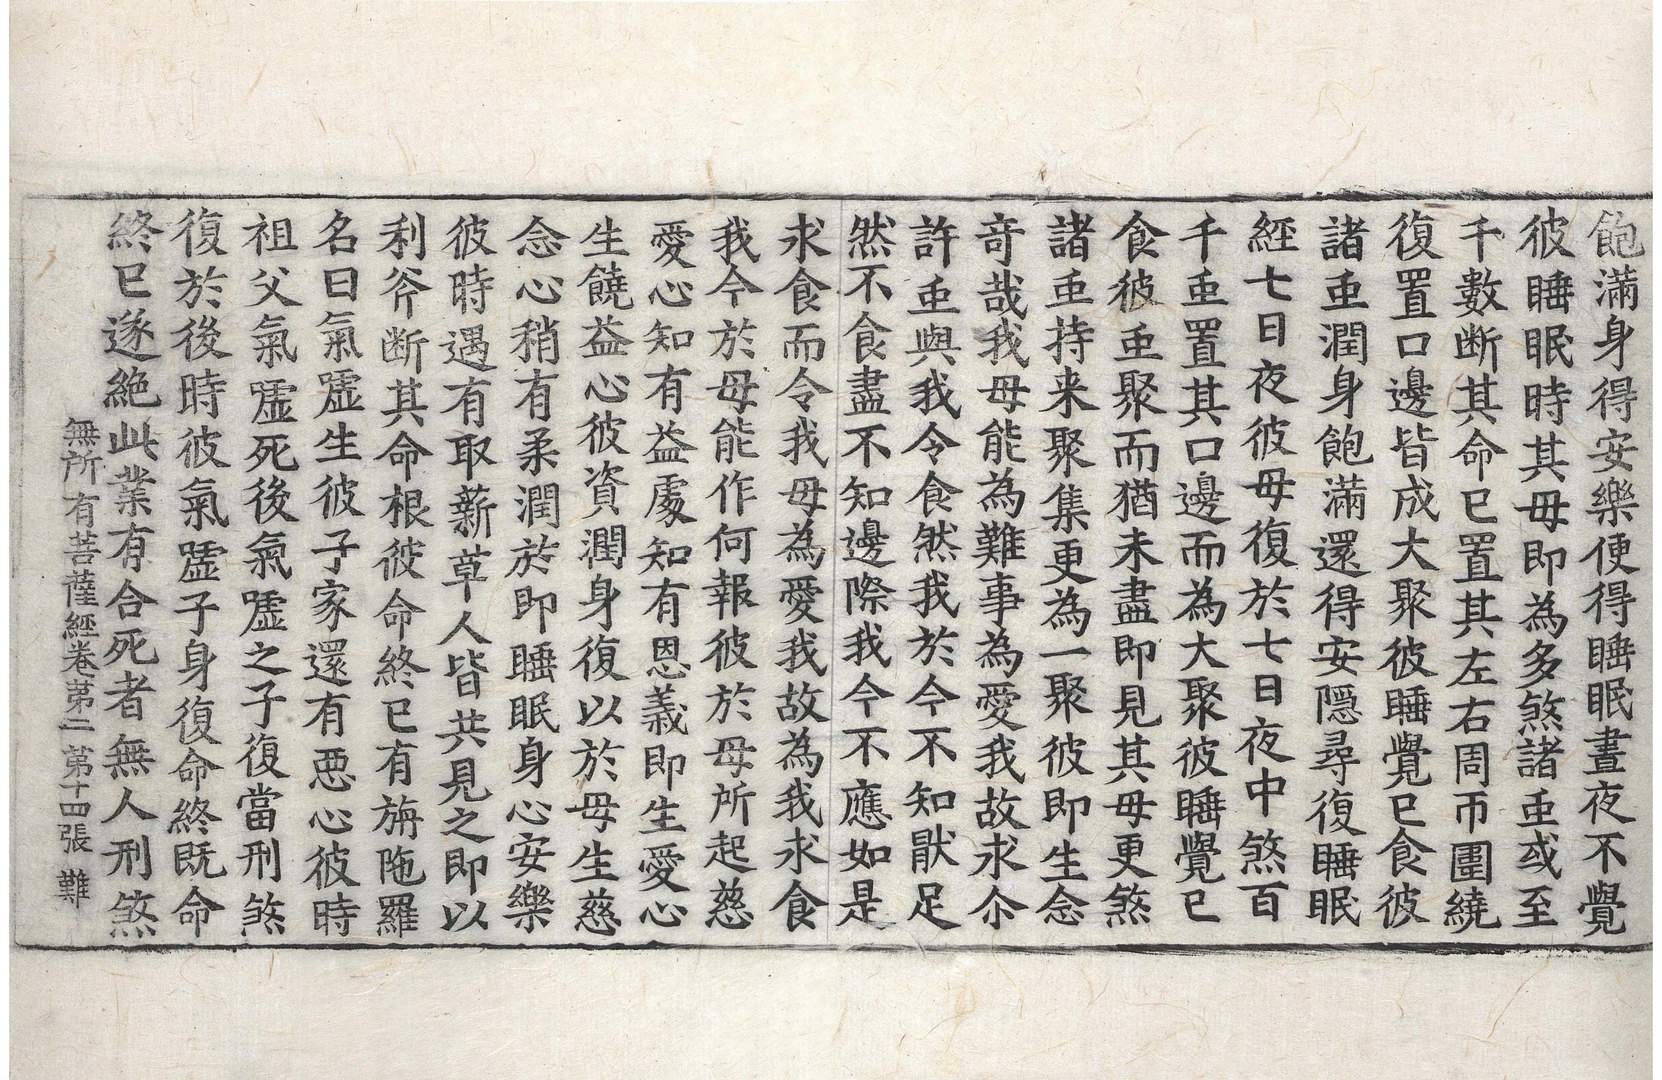 飽滿身得安樂便得睡眠晝夜不覺
彼睡眠時其母即為多煞諸䖝或至
千數断其命已置其左右周帀圍繞
復置口邊皆成大聚彼睡覺已食彼
諸䖝潤身飽滿還得安隱尋復睡眠
經七日夜彼母復於七日夜中煞百
千䖝置其口邊而為大聚彼睡覺已
食彼䖝聚而猶未盡即見其母更煞
諸䖝持来聚集更為一聚彼即生念
奇哉我母能為難事為愛我故求尒
許䖝與我令食然我於今不知猒足
然不食盡不知邊際我今不應如是
求食而令我母為愛我故為我求食
我今於母能作何報彼於母所起慈
愛心知有益處知有恩義即生愛心
生饒益心彼資潤身復以於母生慈
念心稍有柔潤於即睡眠身心安樂
彼時遇有取薪草人皆共見之即以
利斧断其命根彼命終已有旃陁羅
名曰氣噓生彼子家還有惡心彼時
祖父氣噓死後氣噓之子復當刑煞
復於後時彼氣噓子身復命終既命
終已遂絶此業有合死者無人刑煞
無所有菩薩經卷第二 第十四張 難